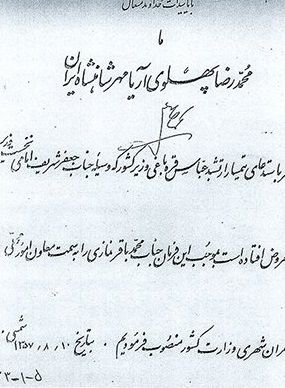 با تاییدات خداوند متعال
ما
محمد رضا پهلوی آریامهر شاهنشاه ایران
بر استدعای تیمسار ارتشبد عباس قره باغی وزیر کشور که وسیله جناب جعفر شریف امامی نخست وزیر
معروض افتاده است بموجب این فرمان جناب محمد باقر نمازی را به سمت معاون امور
عمران شهری وزارت کشور منصوب فرمودیم . بتاریخ ۱۳۵۷٫۸٫۱۰ شمسی .